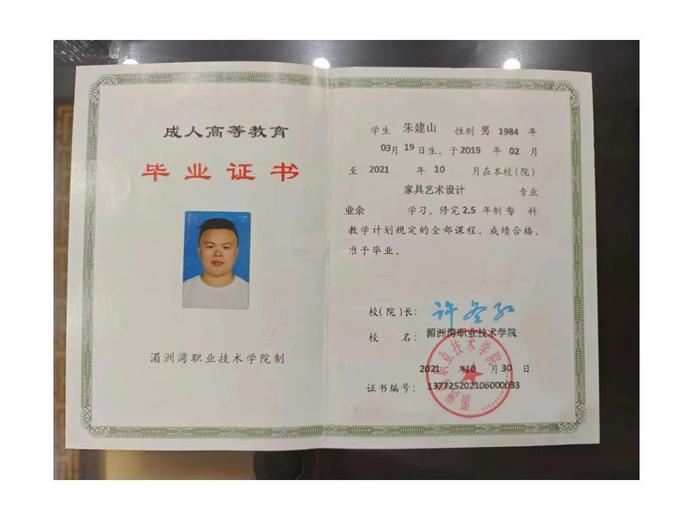 成人高等教育
毕业证书
湄洲湾职业技术学院制
学生 朱建山 性别 男 1984 年
03月 19 日生，于 2019 年 02 月
至 2021 年 10 月在本校（院）
家具艺术设计 专业
业余 学习，修完 2.5 年制 专 科
教学计划规定的全部课程，成绩合格，
准予毕业。
校（院）长：
校 名：湄洲湾职业技术学院
2021 年10 月 30 日
证书编号：137725202106000033